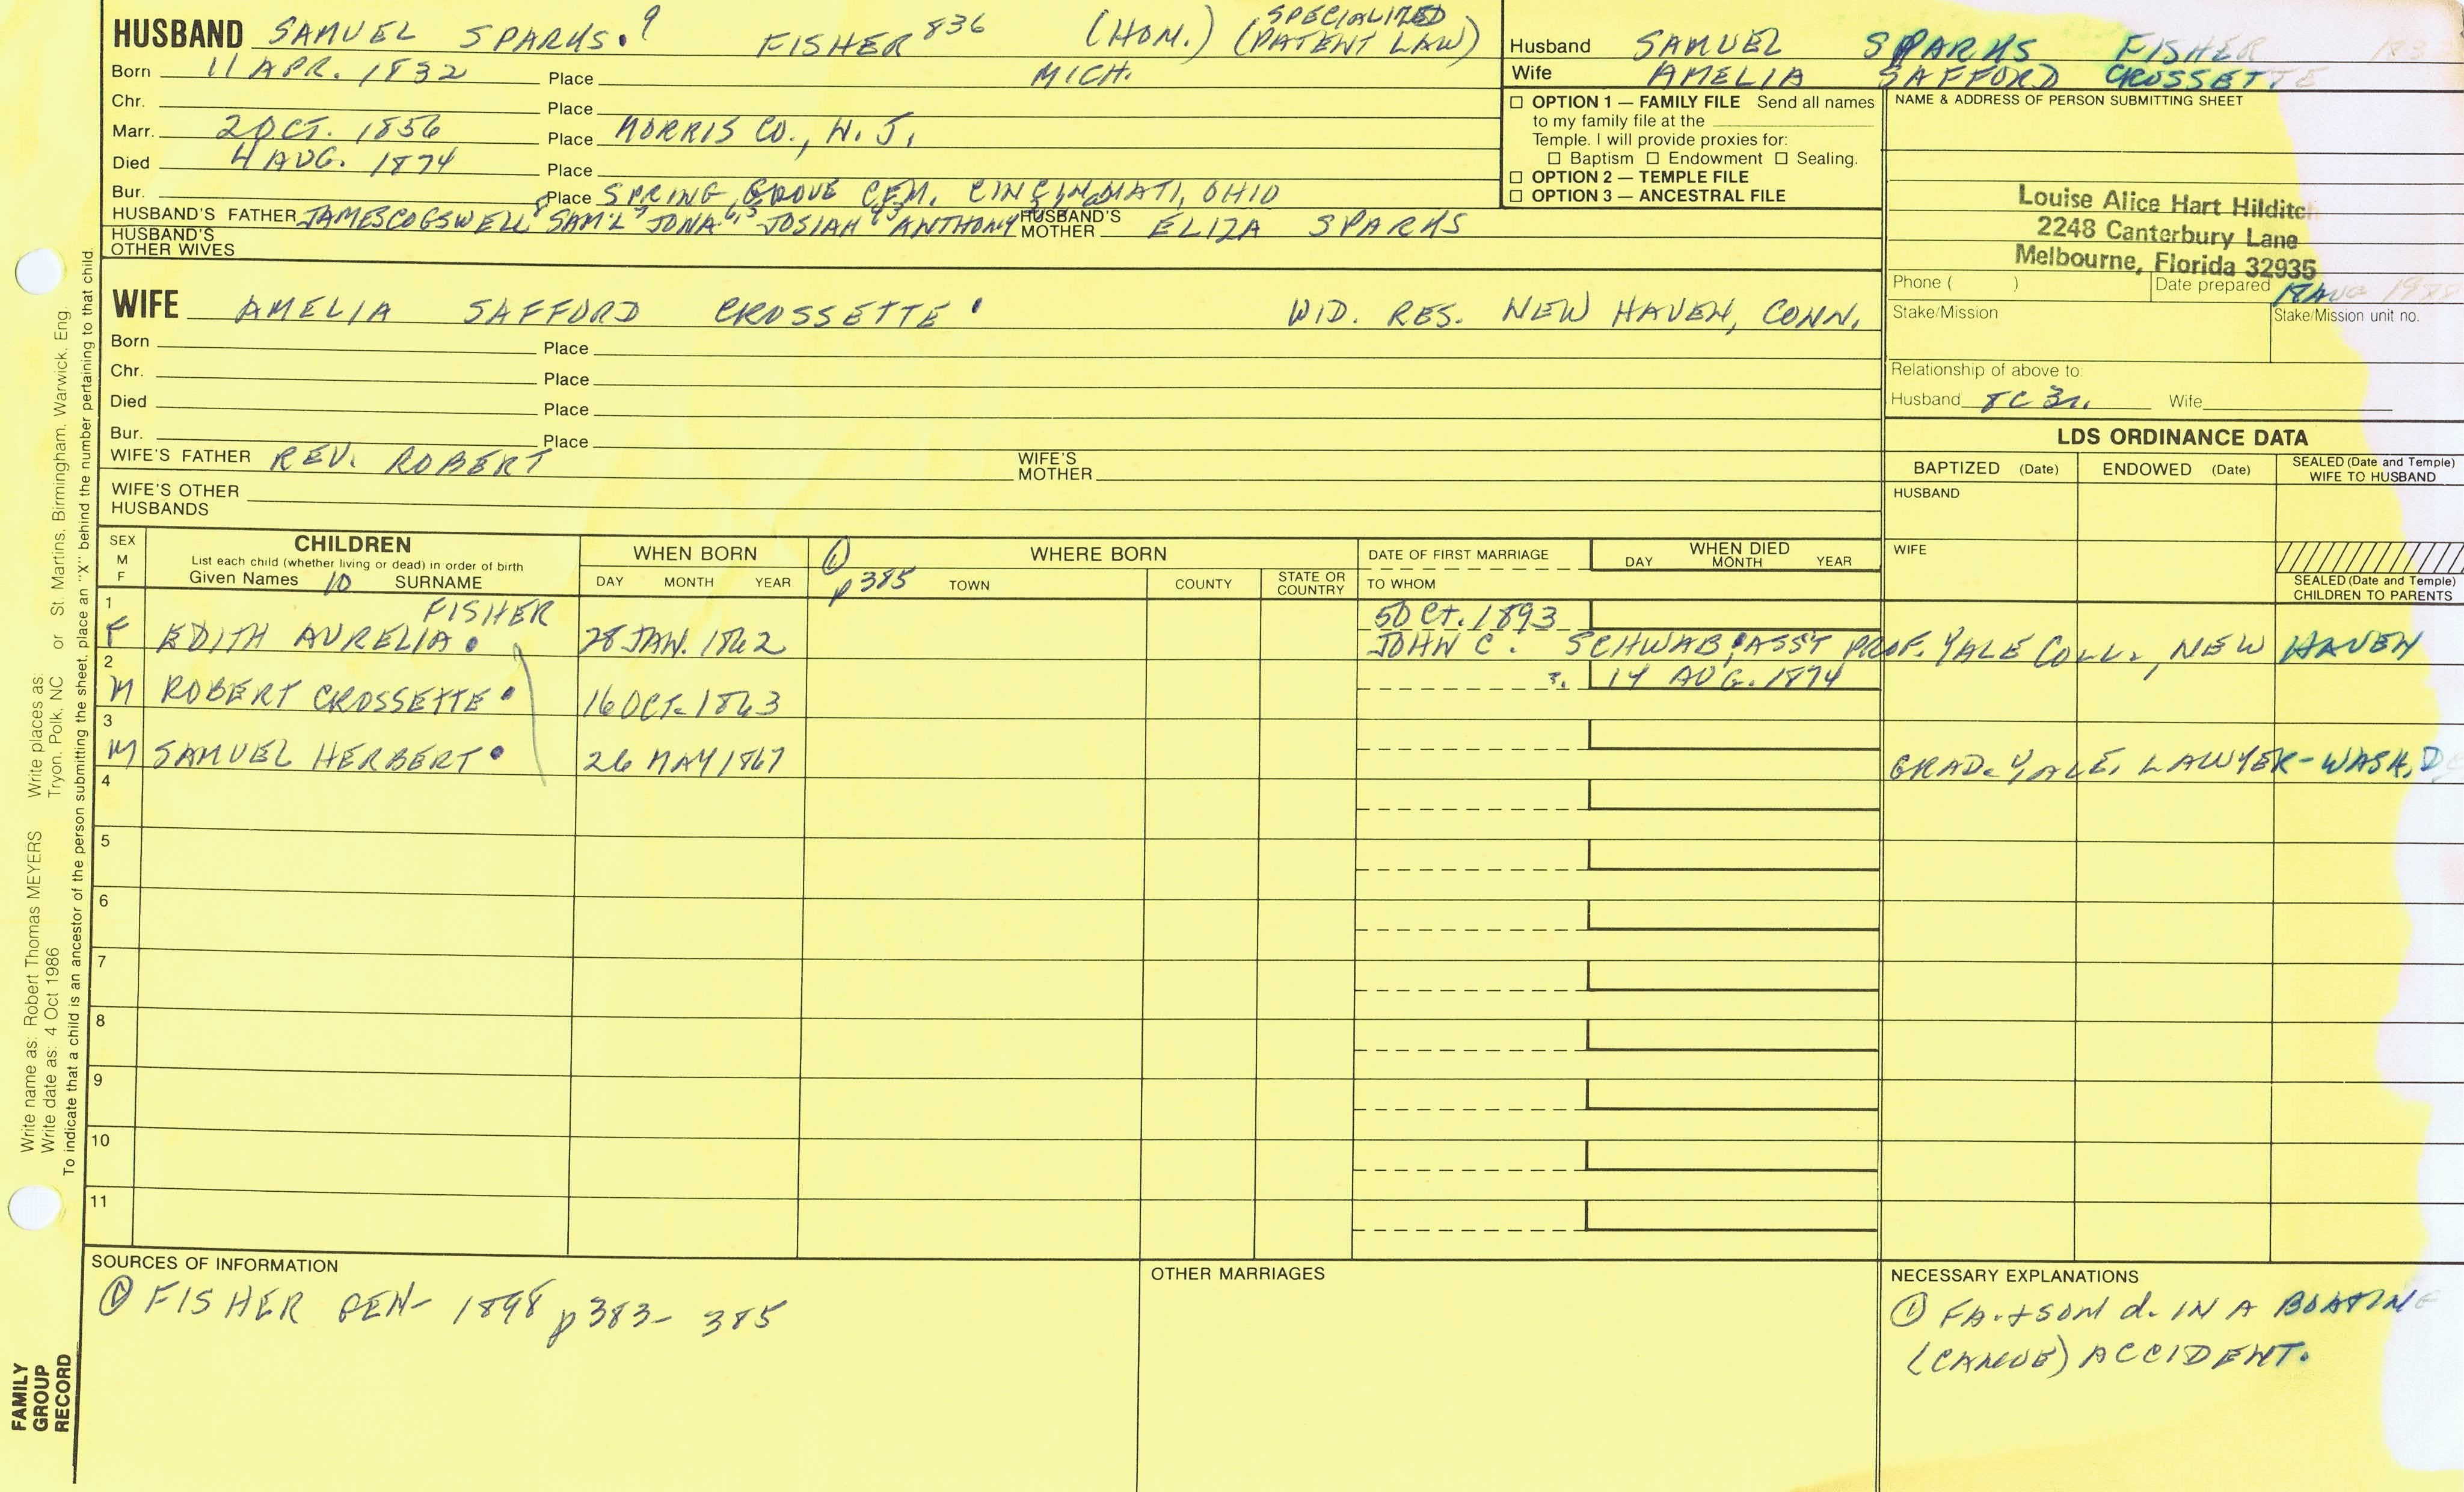 HUSBAND SAMUEL SPARKS. 9 FISHER 836 (HON.) (SPECIALIZED PATENT LAW)
Born 11 APR. 1832 Place MICH.
Chr. Place
Marr. 2 OCT. 1856 Place MORRIS CO., N. J.
Died 4 AUG. 1874 Place
Bur. Place SPRING GROVE CEM. CINCINNATI, OHIO
HUSBAND'S FATHER JAMES COGSWELL 8 SAM'L 7 JONA. 6,5 JOSIAH 4,3 ANTHONY 2,1 HUSBAND'S MOTHER ELIZA SPARKS
HUSBAND'S OTHER WIVES
Husband SAMUEL SPARKS FISHER
Wife AMELIA SAFFORD CROSSETTE
☐ OPTION 1 — FAMILY FILE Send all names
to my family file at the
Temple. I will provide proxies for:
☐ Baptism ☐ Endowment ☐ Sealing.
☐ OPTION 2 — TEMPLE FILE
☐ OPTION 3 — ANCESTRAL FILE
NAME & ADDRESS OF PERSON SUBMITTING SHEET
Louise Alice Hart Hilditch
2248 Canterbury Lane
Melbourne, Florida 32935
Phone ( ) Date prepared AUG
Stake/Mission Stake/Mission unit no.
Relationship of above to:
Husband 8C 3r. Wife
WIFE AMELIA SAFFORD CROSSETTE. WID. RES. NEW HAVEN, CONN.
Born Place
Chr. Place
Died Place
Bur. Place
WIFE'S FATHER REV. ROBERT WIFE'S MOTHER
WIFE'S OTHER HUSBANDS
LDS ORDINANCE DATA
BAPTIZED (Date) ENDOWED (Date) SEALED (Date and Temple) WIFE TO HUSBAND
HUSBAND
WIFE
SEALED (Date and Temple) CHILDREN TO PARENTS
SEX M F
CHILDREN
List each child (whether living or dead) in order of birth
Given Names 10 SURNAME
WHEN BORN
DAY MONTH YEAR
① p385
WHERE BORN
TOWN COUNTY STATE OR COUNTRY
DATE OF FIRST MARRIAGE
TO WHOM
WHEN DIED
DAY MONTH YEAR
1 FISHER 5 Oct. 1893
F EDITH AURELIA. 28 JAN. 1862 JOHN C. SCHWAB, ASS'T PROF. YALE COLL., NEW HAVEN
2 14 AUG. 1874
M ROBERT CROSSETTE. 16 OCT. 1863
3
M SAMUEL HERBERT. 26 MAY 1867 GRAD. YALE. LAWYER-WASH, D
4
5
6
7
8
9
10
11
SOURCES OF INFORMATION
① FISHER GEN- 1898 p383- 385
OTHER MARRIAGES
NECESSARY EXPLANATIONS
① FA. + SON d. IN A BOATING
(CANOE) ACCIDENT.
Write name as: Robert Thomas MEYERS Write places as: St. Martins, Birmingham, Warwick, Eng.
Write date as: 4 Oct 1986 Tryon, Polk, NC or
To indicate that a child is an ancestor of the person submitting the sheet, place an "X" behind the number pertaining to that child.
FAMILY
GROUP
RECORD